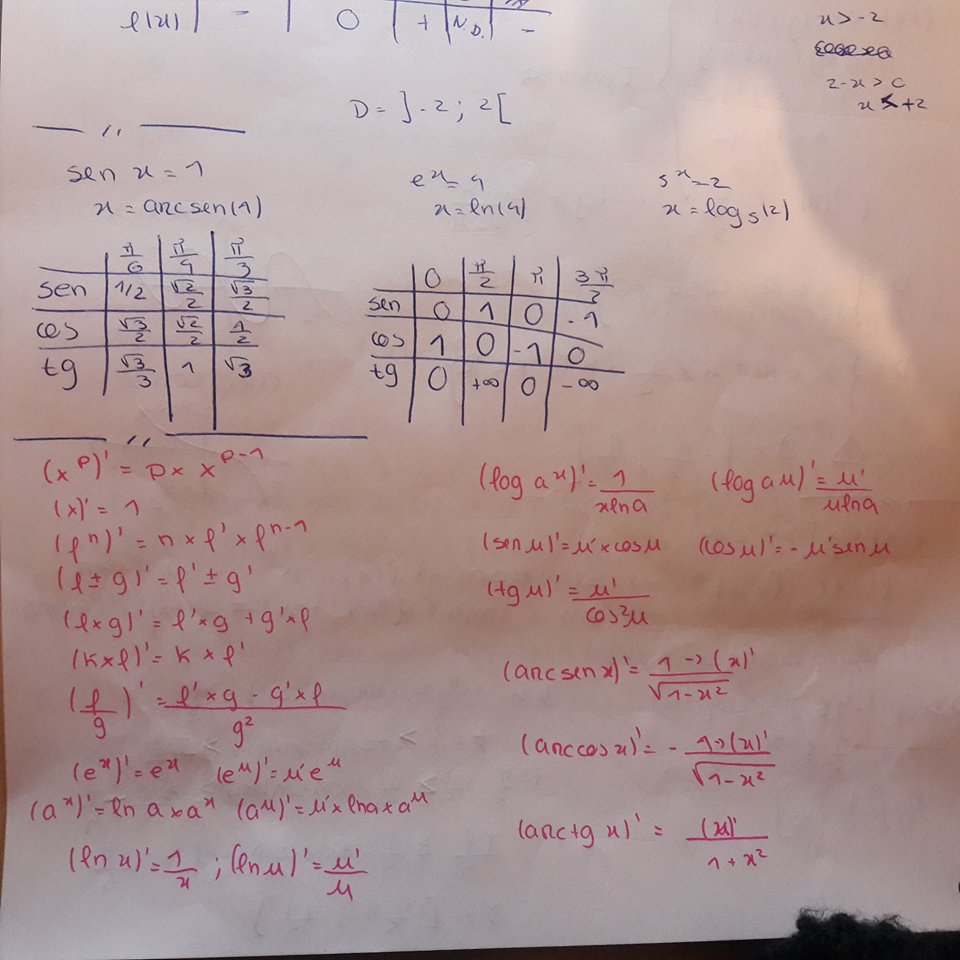 f(x) | - | 0 | + | N.D. | -
x > -2
2-x > 0
x < +2
D = ]-2 ; 2[
— ,, —
sen x = 1
x = arcsen(1)
e^x = 4
x = ln(4)
5^x = 2
x = log₅(2)
π/6 | π/4 | π/3
sen | 1/2 | √2/2 | √3/2
cos | √3/2 | √2/2 | 1/2
tg | √3/3 | 1 | √3
0 | π/2 | π | 3π/2
sen | 0 | 1 | 0 | -1
cos | 1 | 0 | -1 | 0
tg | 0 | +∞ | 0 | -∞
— ,, —
(x^p)' = p × x^(p-1)
(x)' = 1
(f^n)' = n × f' × f^(n-1)
(f ± g)' = f' ± g'
(f × g)' = f' × g + g' × f
(k × f)' = k × f'
(f/g)' = (f' × g - g' × f)/g²
(e^x)' = e^x (e^u)' = u' e^u
(a^x)' = ln a × a^x (a^u)' = u' × ln a × a^u
(ln x)' = 1/x ; (ln u)' = u'/u
(log a^x)' = 1/(x ln a) (log a u)' = u'/(u ln a)
(sen u)' = u' × cos u (cos u)' = -u' sen u
(tg u)' = u'/cos²u
(arcsen x)' = 1 -> (x)'/√(1-x²)
(arccos x)' = - 1 -> (x)'/√(1-x²)
(arctg x)' = (x)'/(1+x²)